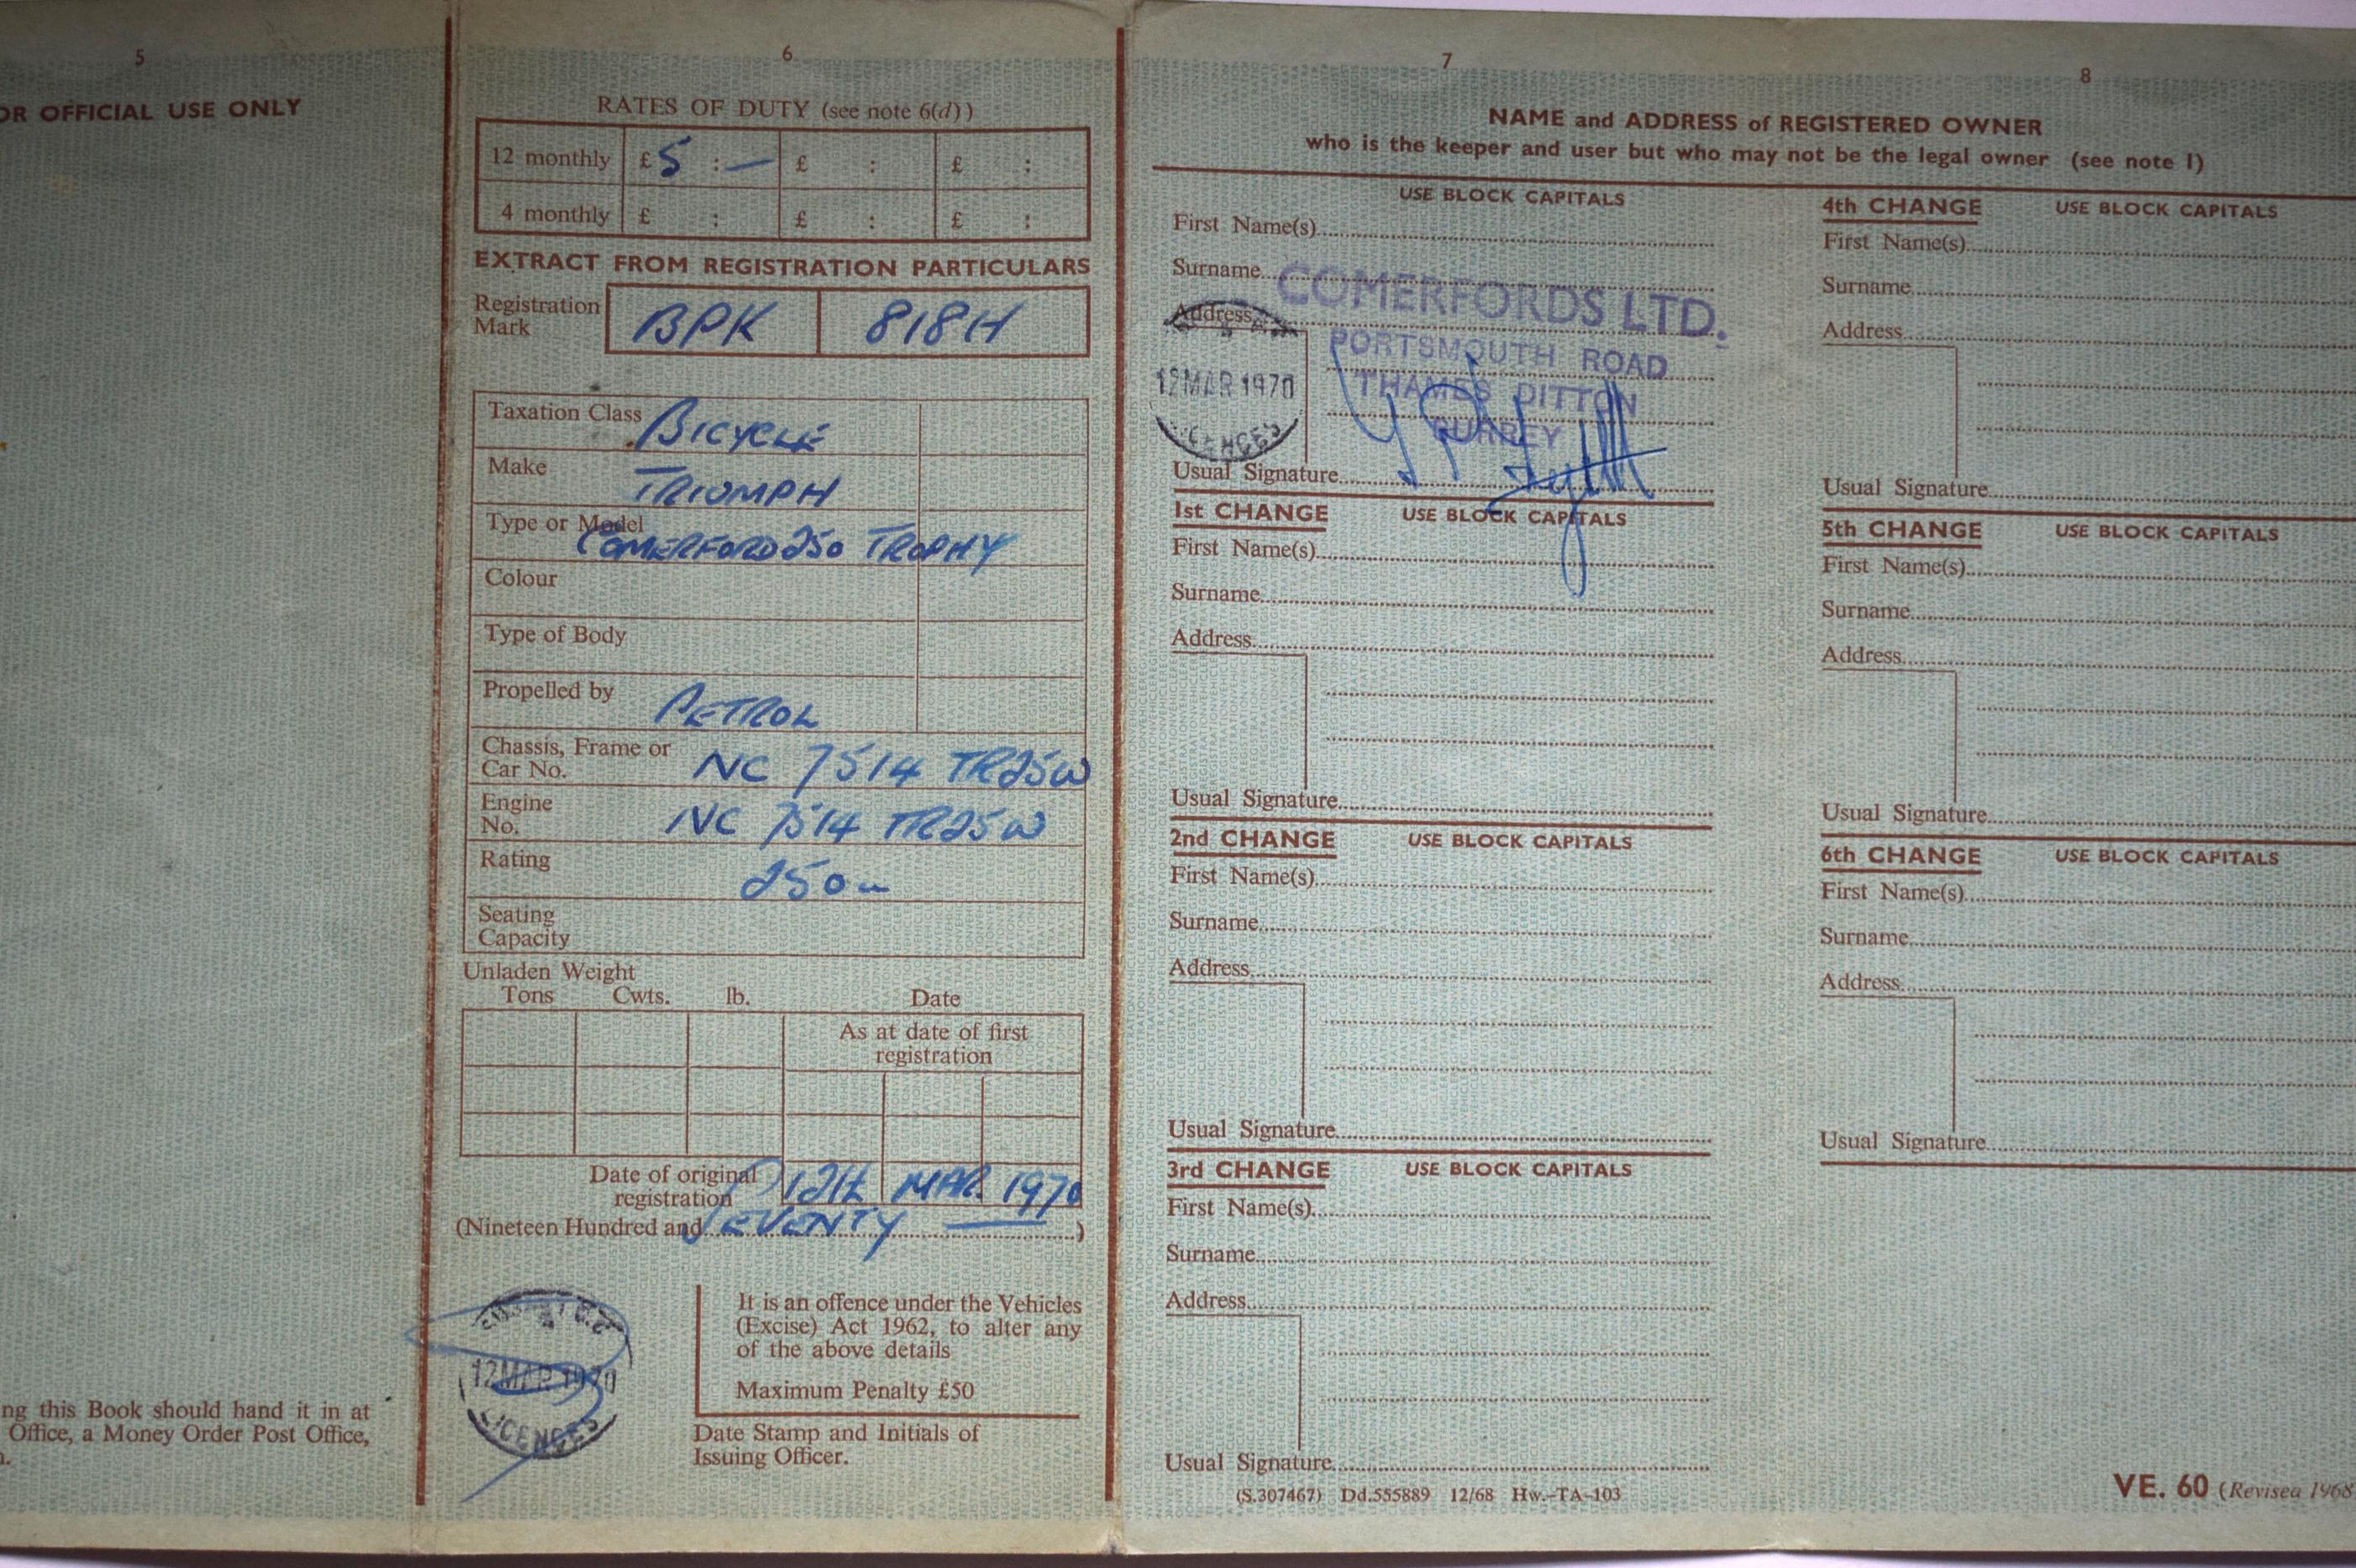 5
OR OFFICIAL USE ONLY
ng this Book should hand it in at
Office, a Money Order Post Office,
6
RATES OF DUTY (see note 6(d))
12 monthly £5 : — £ : £ :
4 monthly £ : £ : £ :
EXTRACT FROM REGISTRATION PARTICULARS
Registration Mark BPK 818H
Taxation Class BICYCLE
Make TRIUMPH
Type or Model COMERFORD 250 TROPHY
Colour
Type of Body
Propelled by PETROL
Chassis, Frame or Car No. NC 7514 TR25W
Engine No. NC 7514 TR25W
Rating 250
Seating Capacity
Unladen Weight
Tons Cwts. lb. Date
As at date of first
registration
Date of original registration 12th MAR. 1970
(Nineteen Hundred and SEVENTY ——)
12 MAR 1970
LICENCES
It is an offence under the Vehicles
(Excise) Act 1962, to alter any
of the above details
Maximum Penalty £50
Date Stamp and Initials of
Issuing Officer.
7
8
NAME and ADDRESS of REGISTERED OWNER
who is the keeper and user but who may not be the legal owner (see note 1)
USE BLOCK CAPITALS
First Name(s)
Surname
COMERFORDS LTD.
Address
PORTSMOUTH ROAD
12 MAR 1970
THAMES DITTON
LICENCES
SURREY
Usual Signature
1st CHANGE USE BLOCK CAPITALS
First Name(s)
Surname
Address
Usual Signature
2nd CHANGE USE BLOCK CAPITALS
First Name(s)
Surname
Address
Usual Signature
3rd CHANGE USE BLOCK CAPITALS
First Name(s)
Surname
Address
Usual Signature
(S.307467) Dd.555889 12/68 Hw.-TA-103
4th CHANGE USE BLOCK CAPITALS
First Name(s)
Surname
Address
Usual Signature
5th CHANGE USE BLOCK CAPITALS
First Name(s)
Surname
Address
Usual Signature
6th CHANGE USE BLOCK CAPITALS
First Name(s)
Surname
Address
Usual Signature
VE. 60 (Revised 1968